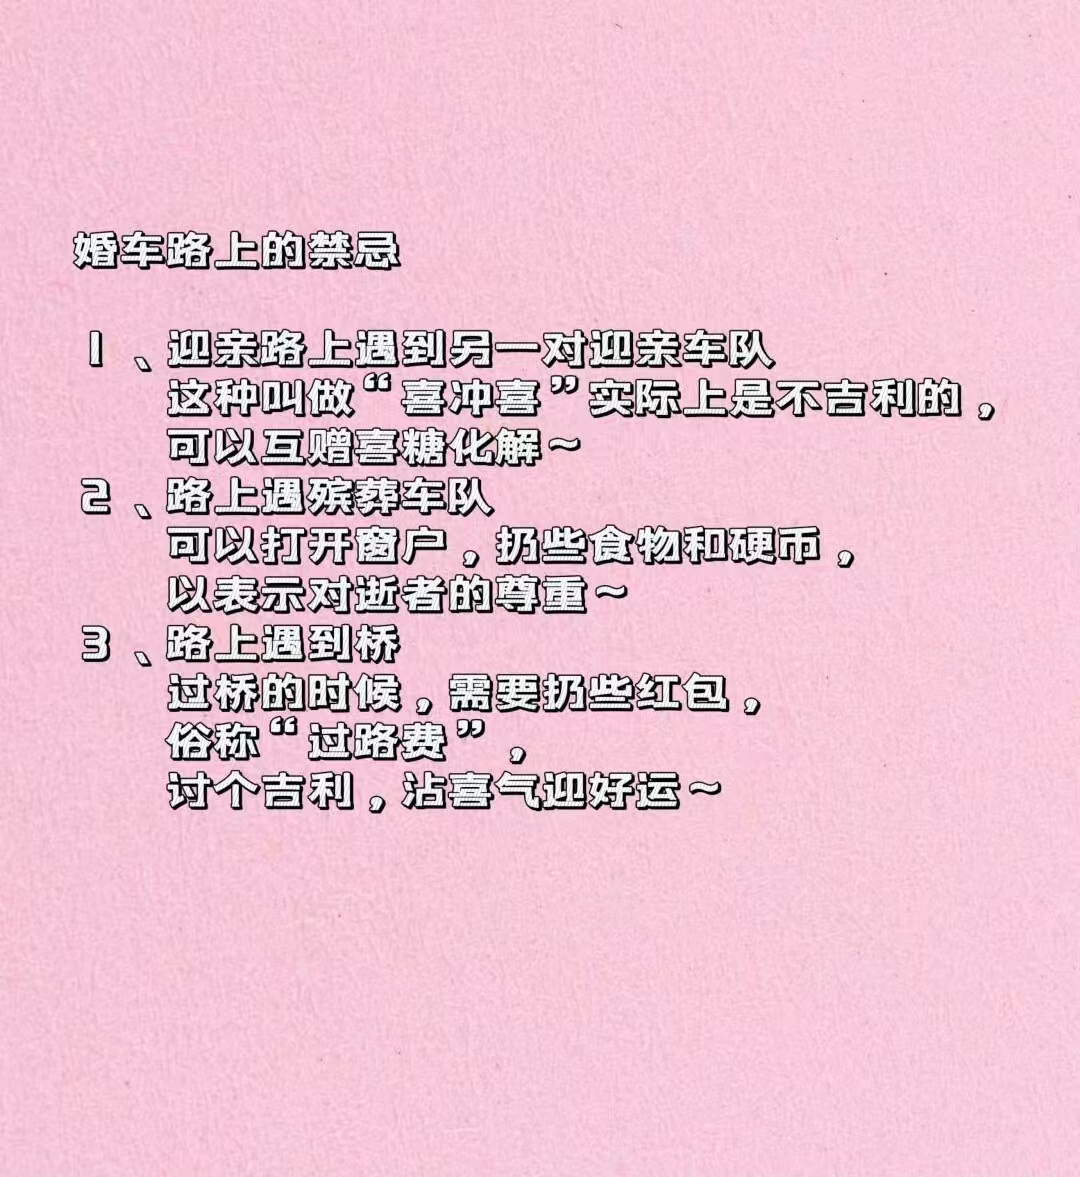 婚车路上的禁忌
1、迎亲路上遇到另一对迎亲车队
这种叫做“喜冲喜”实际上是不吉利的，
可以互赠喜糖化解～
2、路上遇殡葬车队
可以打开窗户，扔些食物和硬币，
以表示对逝者的尊重～
3、路上遇到桥
过桥的时候，需要扔些红包，
俗称“过路费”，
讨个吉利，沾喜气迎好运～